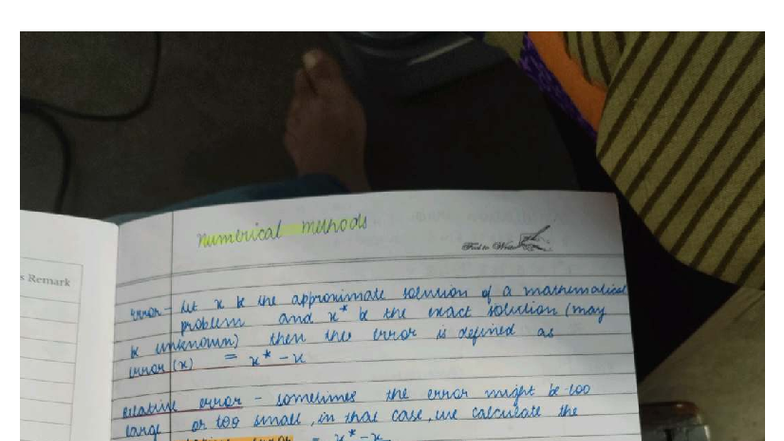 s Remark
Numerical methods
Fail to Write
Error - Let x be the approximate solution of a mathematical
problem and x* be the exact solution (may
be unknown) then the error is defined as
error (x) = x* - x
Relative error - sometimes the error might be too
large or too small, in that case, we calculate the
error = x* - x